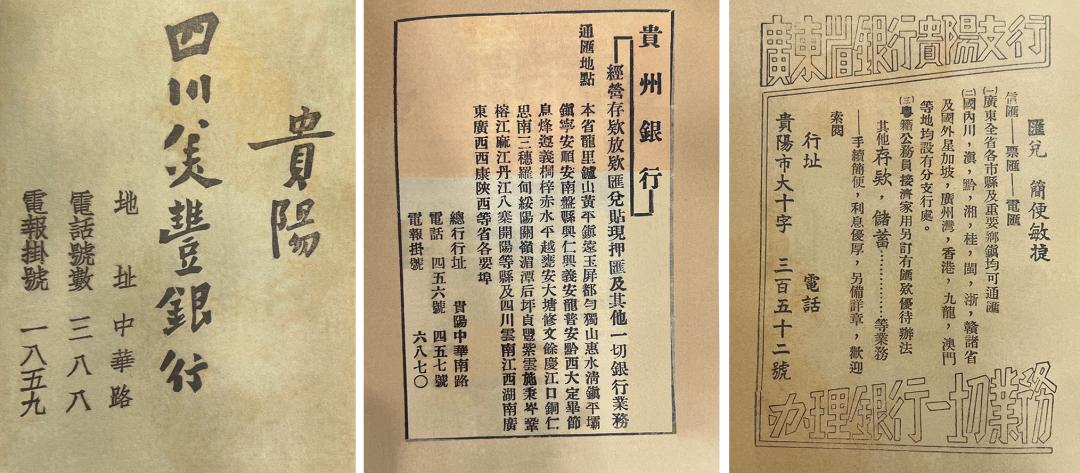 貴陽
四川美豐銀行
地址 中華路
電話號數 三八八
電報掛號 一八五九
貴州銀行
經營存欵放欵匯兌貼現押匯及其他一切銀行業務
通匯地點 本省龍里鑪山黃平鎮遠玉屏都勻獨山惠水清鎮平壩
鎮寧安順安南盤縣興仁興義安龍普安黔西大定畢節
息烽遵義桐梓赤水平越甕安大塘修文餘慶江口銅仁
思南三穗羅甸綏陽關嶺湄潭后坪貞豐紫雲施秉岑鞏
榕江麻江丹江八寨開陽等縣及四川雲南江西湖南廣
東廣西西康陝西等省各要埠
總行行址 貴陽中華南路
電話 四五六號 四五七號
電報掛號 六八七〇
廣東省銀行貴陽支行
匯兌 簡便敏捷
信匯——票匯——電匯
㈠廣東全省各市縣及重要鄉鎮均可通匯
㈡國內川，滇，黔，湘，桂，閩，浙，贛諸省
及國外星加坡，廣州灣，香港，九龍，澳門
等地均設有分支行處。
㈢粵籍公務員接濟家用另訂有匯欵優待辦法
其他存欵，儲蓄…………等業務
——手續簡便，利息優厚，另備詳章，歡迎
索閱
行址 電話
貴陽市大十字 三百五十二號
办理銀行一切業務